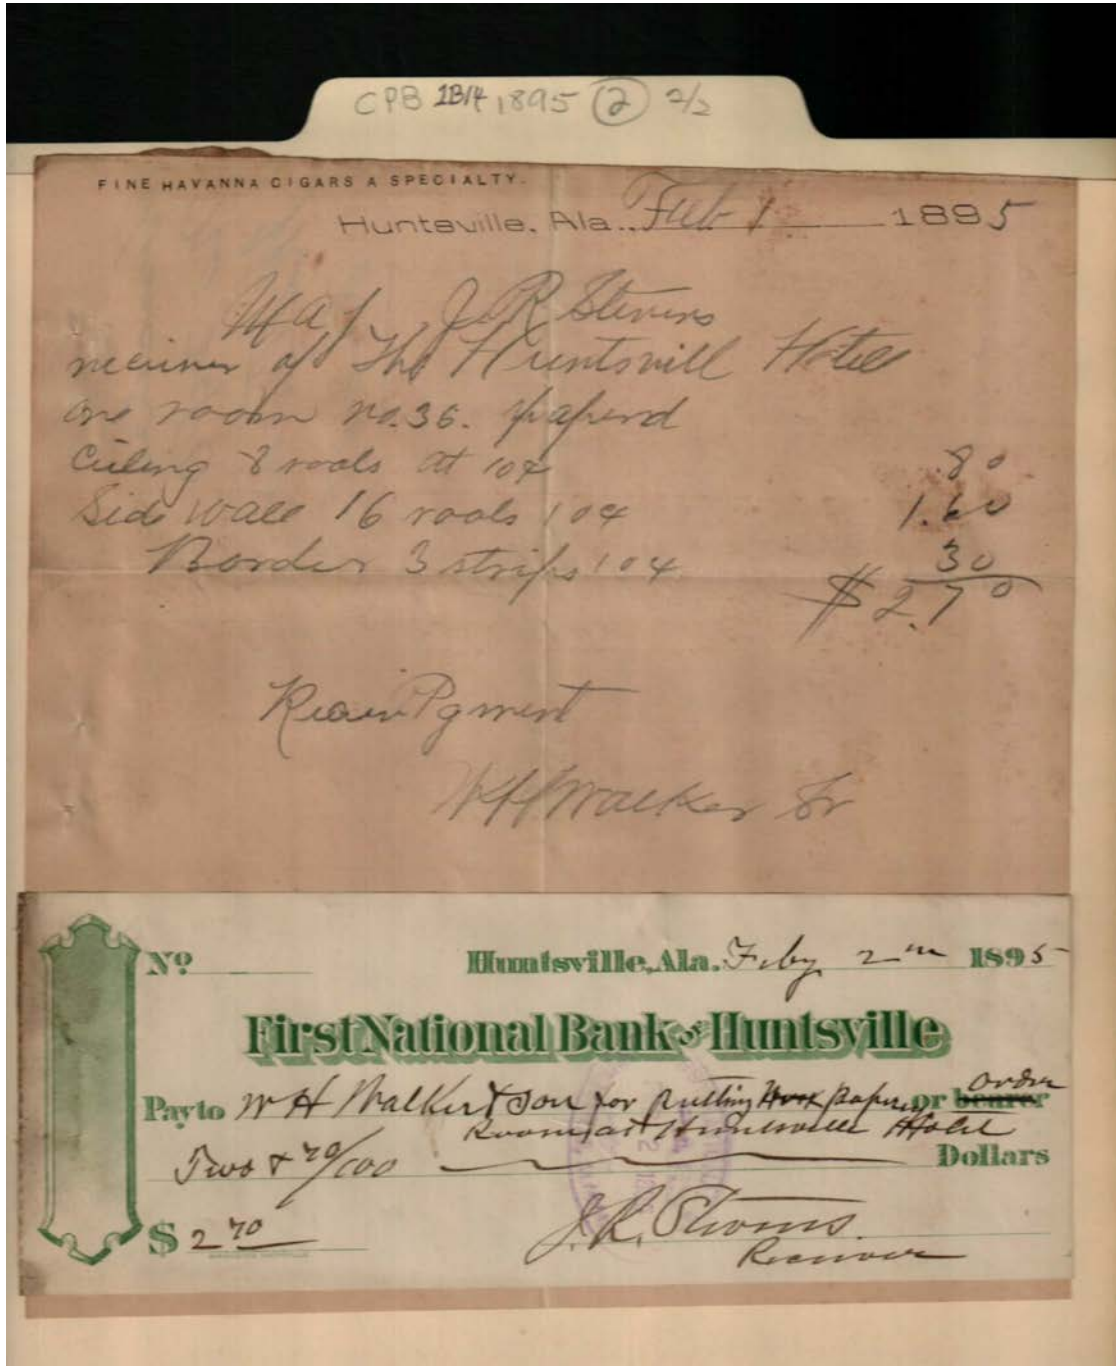 CPB 1B14 1895 (2) 2/2
FINE HAVANNA CIGARS A SPECIALTY.
Huntsville, Ala., Feb 1 1895
Maj J. R Stevens
receiver of The Huntsvill Hotel
one room no. 36. paperd
Cieling 8 rools at 10¢ .80
Side wall 16 rools 10¢ 1.60
Border 3 strips 10¢ 30
$2.70
Pyment
W H Walker Sr
No Huntsville, Ala. Feby 2nd 1895
First National Bank of Huntsville
Pay to W H Walker & Son for putting or bearer order
Room at Huntsville Hotel
Two & 70/100 Dollars
$ 2 70
J. R. Stevens
Receiver